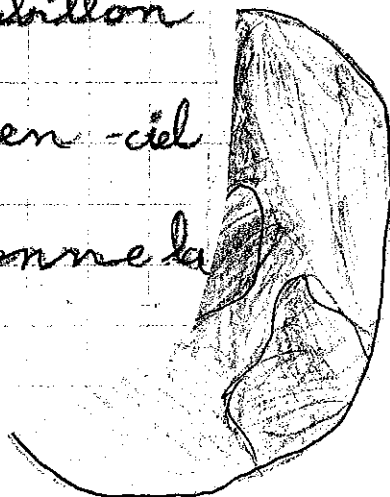 billon
en-ciel
onne la